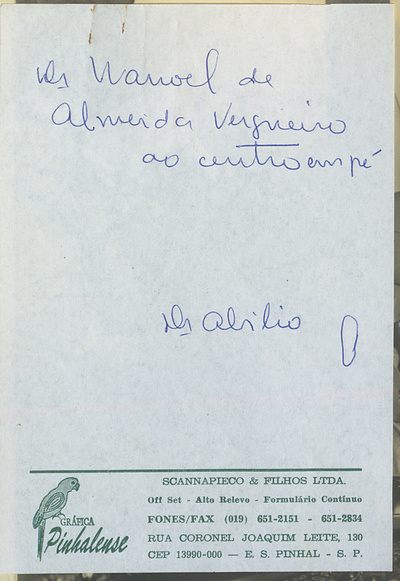 Dr Manoel de
Almeida Vergueiro
ao centro em pé
Dr Abilio
GRÁFICA
Pinhalense
SCANNAPIECO & FILHOS LTDA.
Off Set - Alto Relevo - Formulário Contínuo
FONES/FAX (019) 651-2151 - 651-2834
RUA CORONEL JOAQUIM LEITE, 130
CEP 13990-000 — E. S. PINHAL - S. P.